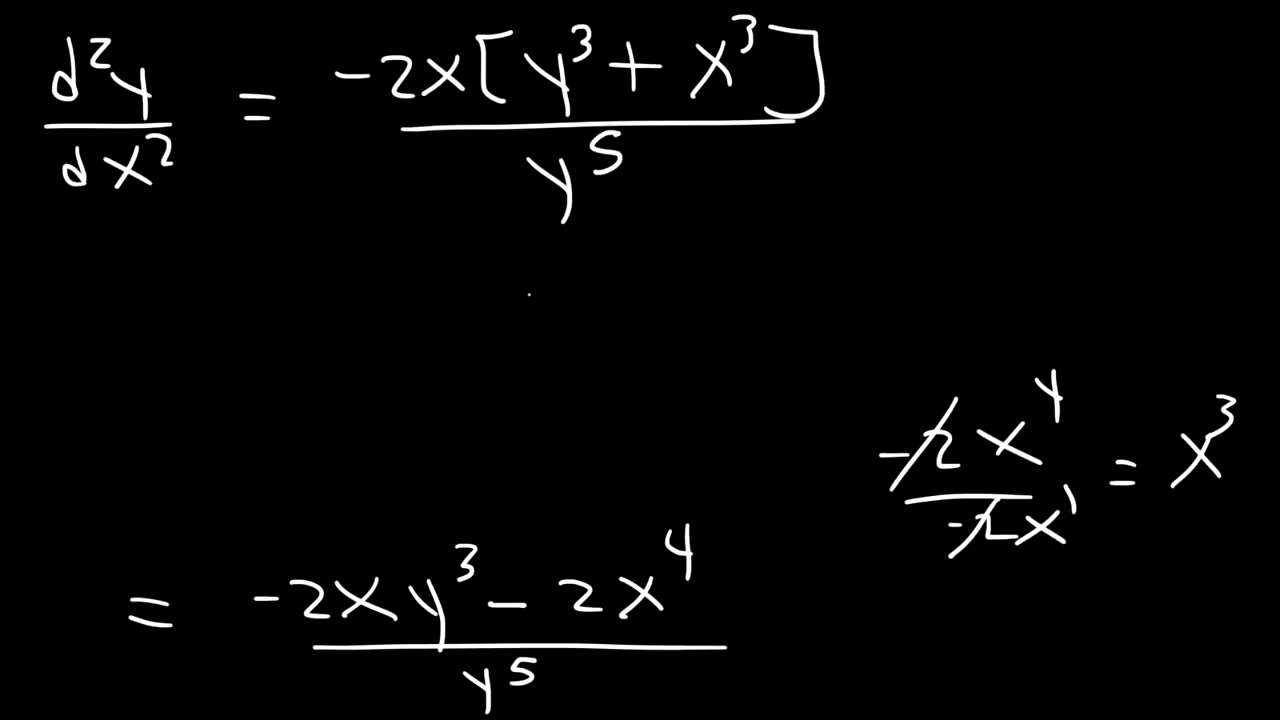 d²y/dx² = -2x[y³ + x³]/y⁵
-2x⁴/-2x¹ = x³
= -2xy³ - 2x⁴/y⁵